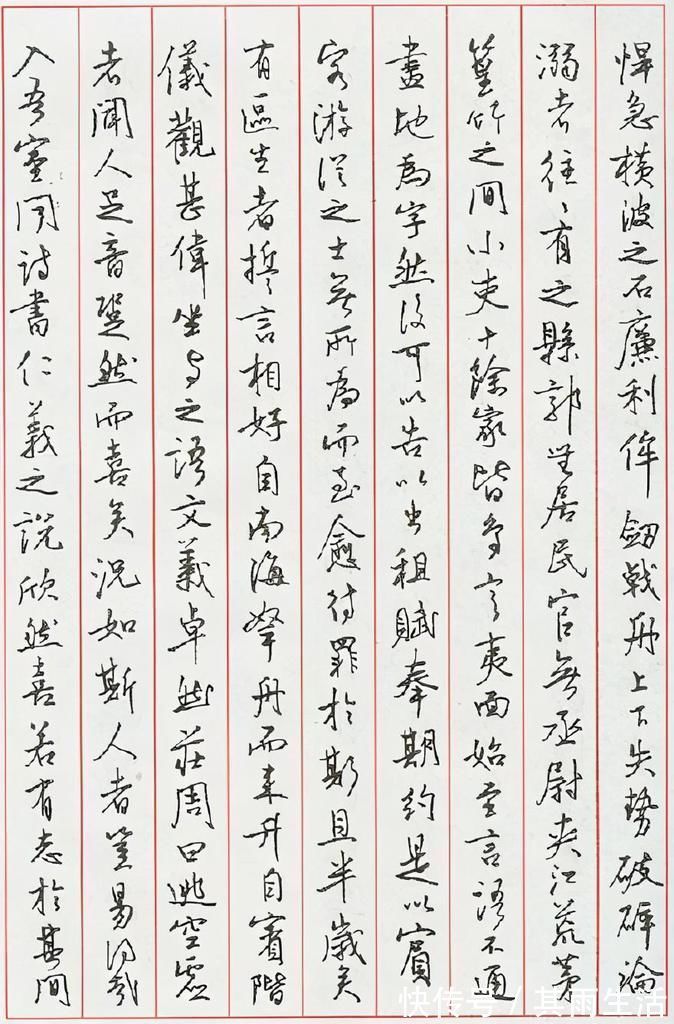 悍急橫波之石廉利侔劒戟舟上下失勢破碎淪
溺者往々有之縣郭無居民官無丞尉夾江荒茅
篁竹之間小吏十餘家皆鳥言夷面始至言語不通
畫地為字然後可以告以出租賦奉期約是以賓
客游從之士無所為而至愈待罪於斯且半歲矣
有區生者誓言相好自南海拏舟而來升自賓階
儀觀甚偉坐與之語文義卓然莊周曰逃空虛
者聞人足音跫然而喜矣況如斯人者豈易得哉
入吾室聞詩書仁義之說欣然喜若有志於其間
快传号/其雨生活